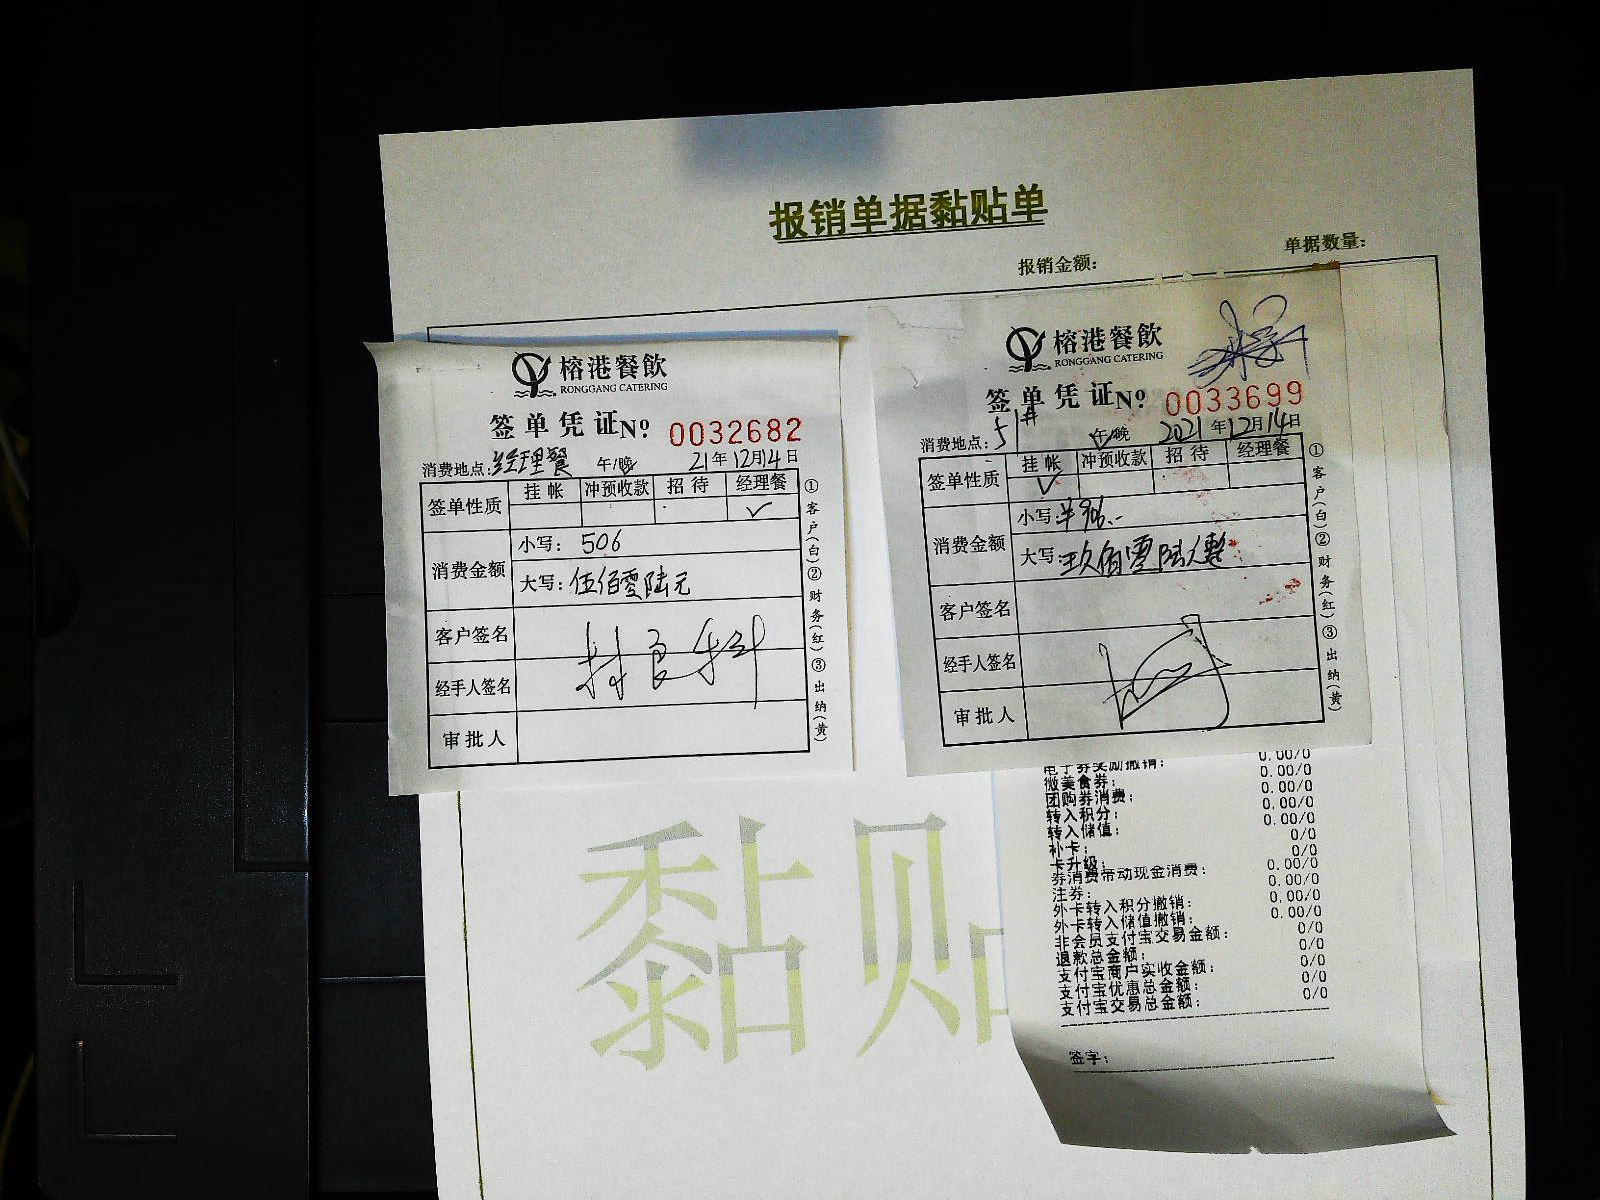 报销单据黏贴单
报销金额：
单据数量：
榕港餐飲
RONGGANG CATERING
签单凭证No 0032682
消费地点：经理餐 午/晚 21年12月14日
签单性质 挂帐 冲预收款 招待 经理餐
✓
消费金额
小写：506
大写：伍佰零陆元
客户签名
经手人签名
审批人
①客户(白)②财务(红)③出纳(黄)
榕港餐飲
RONGGANG CATERING
签单凭证No 0033699
消费地点：51# 午/晚 2021年12月14日
签单性质 挂帐 冲预收款 招待 经理餐
✓
消费金额
小写：¥906.-
大写：玖佰零陆元整
客户签名
经手人签名
审批人
①客户(白)②财务(红)③出纳(黄)
0.00/0
电子券奖励撤销： 0.00/0
微美食券： 0.00/0
团购券消费： 0.00/0
转入积分： 0.00/0
转入储值： 0/0
补卡： 0/0
卡升级： 0.00/0
券消费带动现金消费： 0.00/0
注券： 0.00/0
外卡转入积分撤销： 0.00/0
外卡转入储值撤销： 0/0
非会员支付宝交易金额： 0/0
退款总金额： 0/0
支付宝商户实收金额： 0/0
支付宝优惠总金额： 0/0
支付宝交易总金额：
签字：
黏贴